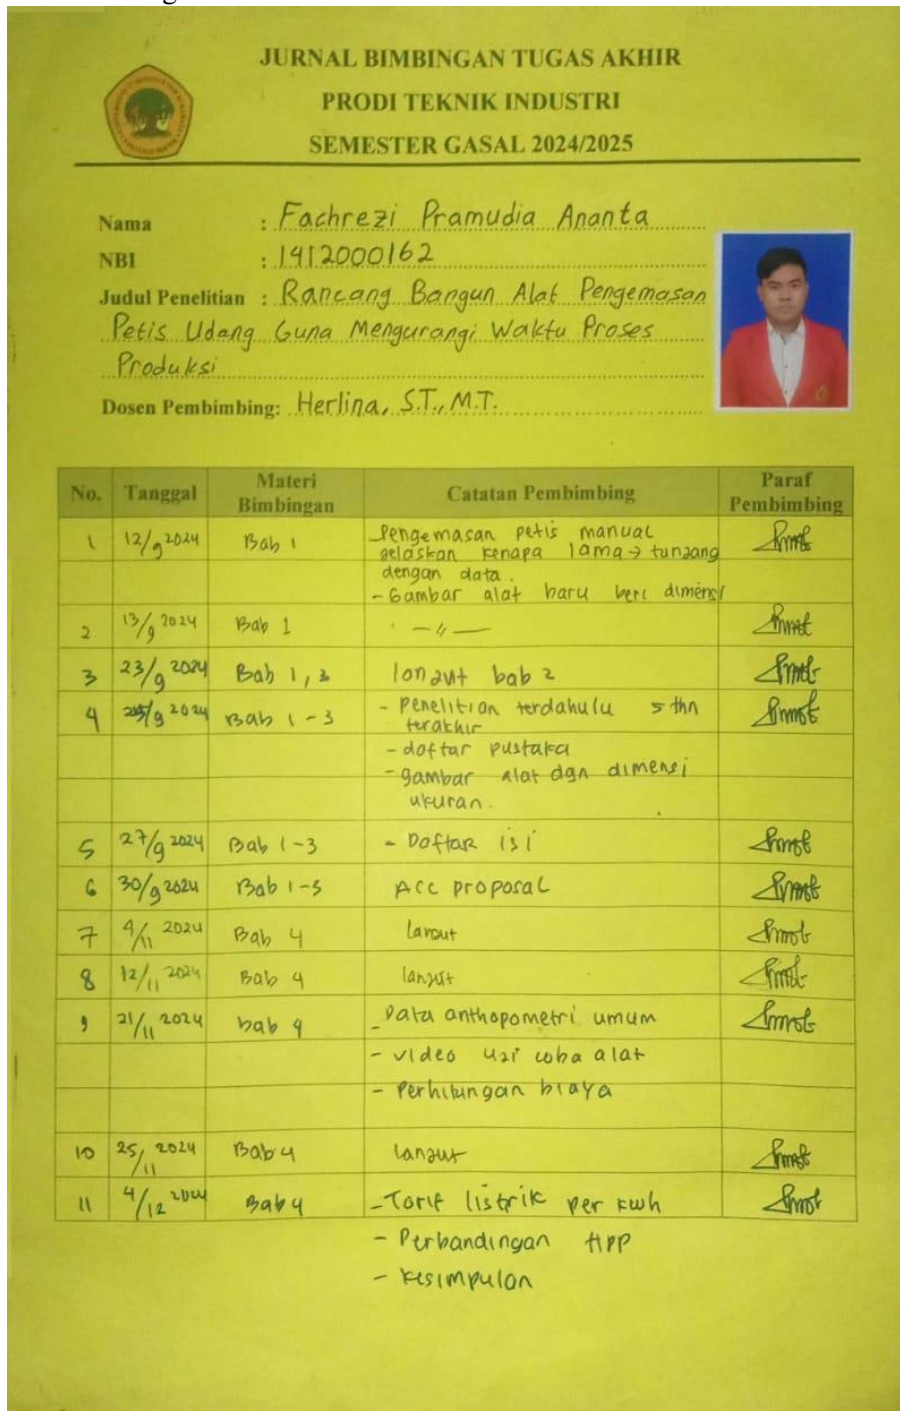 JURNAL BIMBINGAN TUGAS AKHIR
PRODI TEKNIK INDUSTRI
SEMESTER GASAL 2024/2025
Nama : Fachrezi Pramudia Ananta
NBI : 1412000162
Judul Penelitian : Rancang Bangun Alat Pengemasan
Petis Udang Guna Mengurangi Waktu Proses
Produksi
Dosen Pembimbing: Herlina, S.T., M.T.
No. Tanggal Materi Bimbingan Catatan Pembimbing Paraf Pembimbing
1 12/9 2024 Bab 1 - Pengemasan petis manual
jelaskan kenapa lama → tunjang
dengan data.
- Gambar alat baru beri dimensi
2 13/9 2024 Bab 1 — 〃 —
3 23/9 2024 Bab 1, 3 lanjut bab 2
4 9 2024 Bab 1 - 3 - Penelitian terdahulu 5 thn
terakhir
- daftar pustaka
- gambar alat dgn dimensi
ukuran.
5 27/9 2024 Bab 1-3 - Daftar isi
6 30/9 2024 Bab 1-3 ACC proposal
7 4/11 2024 Bab 4 lanjut
8 12/11 2024 Bab 4 lanjut
9 21/11 2024 bab 4 - Data anthopometri umum
- video uji coba alat
- Perhitungan biaya
10 25/11 2024 Bab 4 lanjut
11 4/12 2024 Bab 4 - Tarif listrik per kwh
- Perbandingan HPP
- Kesimpulan